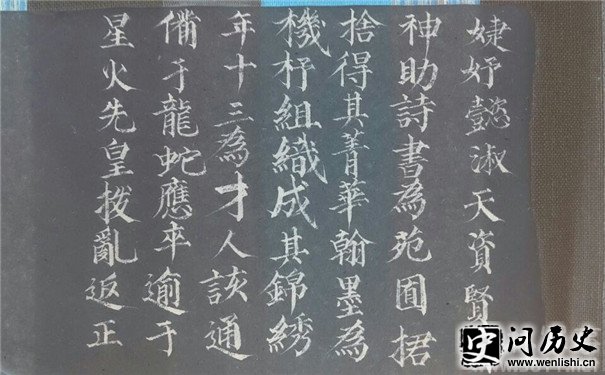 婕妤懿淑天資賢
神助詩書為苑囿捃
捨得其菁華翰墨為
機杼組織成其錦綉
年十三為才人該通
僃于龍蛇應卒逾于
星火先皇拨亂返正
史问历史
www.wenlishi.com